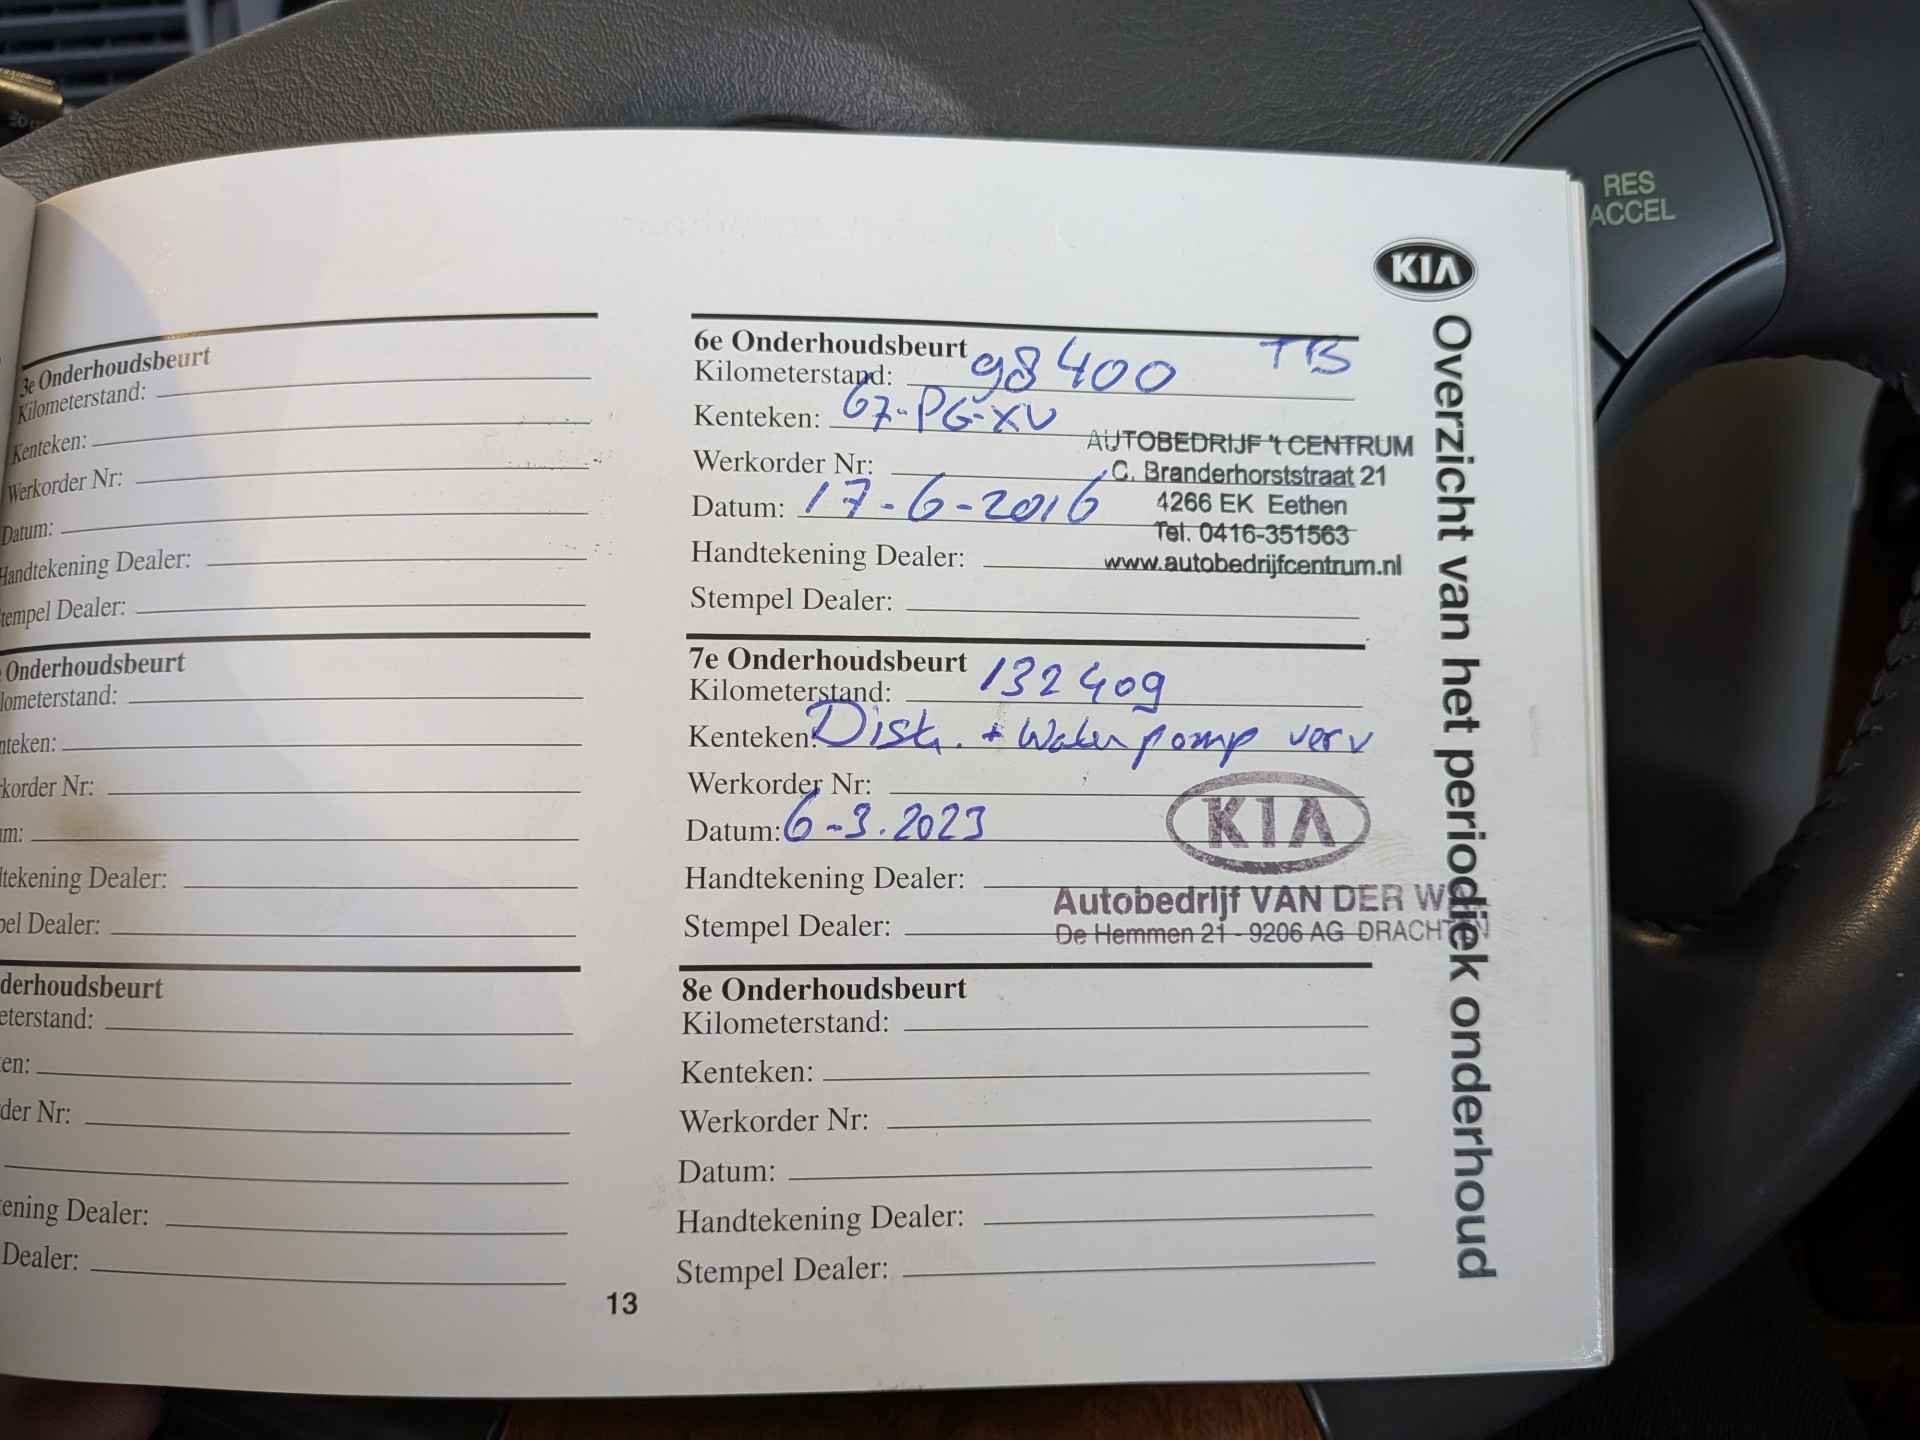 RES
ACCEL
KIA
Overzicht van het periodiek onderhoud
3e Onderhoudsbeurt
Kilometerstand:
Kenteken:
Werkorder Nr:
Datum:
Handtekening Dealer:
Stempel Dealer:
Onderhoudsbeurt
lometerstand:
nteken:
korder Nr:
um:
dtekening Dealer:
pel Dealer:
derhoudsbeurt
eterstand:
en:
der Nr:
ening Dealer:
Dealer:
6e Onderhoudsbeurt TB
Kilometerstand: 98400
Kenteken: 67-PG-XV
AUTOBEDRIJF 't CENTRUM
Werkorder Nr: C. Branderhorststraat 21
Datum: 17-6-2016 4266 EK Eethen
Tel. 0416-351563
Handtekening Dealer: www.autobedrijfcentrum.nl
Stempel Dealer:
7e Onderhoudsbeurt
Kilometerstand: 132409
Kenteken: Distr. + Waterpomp verv
Werkorder Nr:
Datum: 6-3.2023 KIA
Handtekening Dealer:
Autobedrijf VAN DER
Stempel Dealer: De Hemmen 21 - 9206 AG DRACHTEN
8e Onderhoudsbeurt
Kilometerstand:
Kenteken:
Werkorder Nr:
Datum:
Handtekening Dealer:
Stempel Dealer:
13